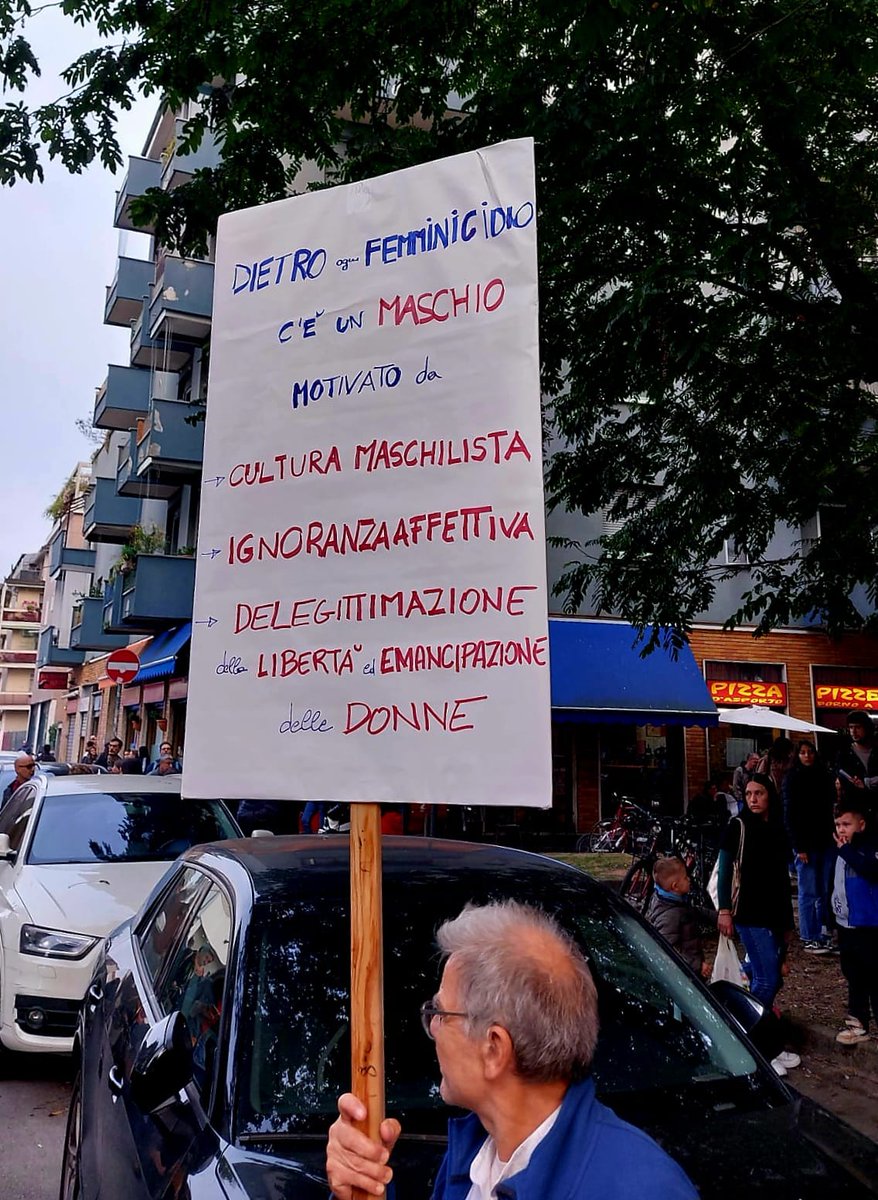 DIETRO ogni FEMMINICIDIO
C'E' UN MASCHIO
MOTIVATO da
→ CULTURA MASCHILISTA
→ IGNORANZA AFFETTIVA
→ DELEGITTIMAZIONE
della LIBERTA' ed EMANCIPAZIONE
delle DONNE
PIZZA
D'ASPORTO
PIZZE
FORNO A